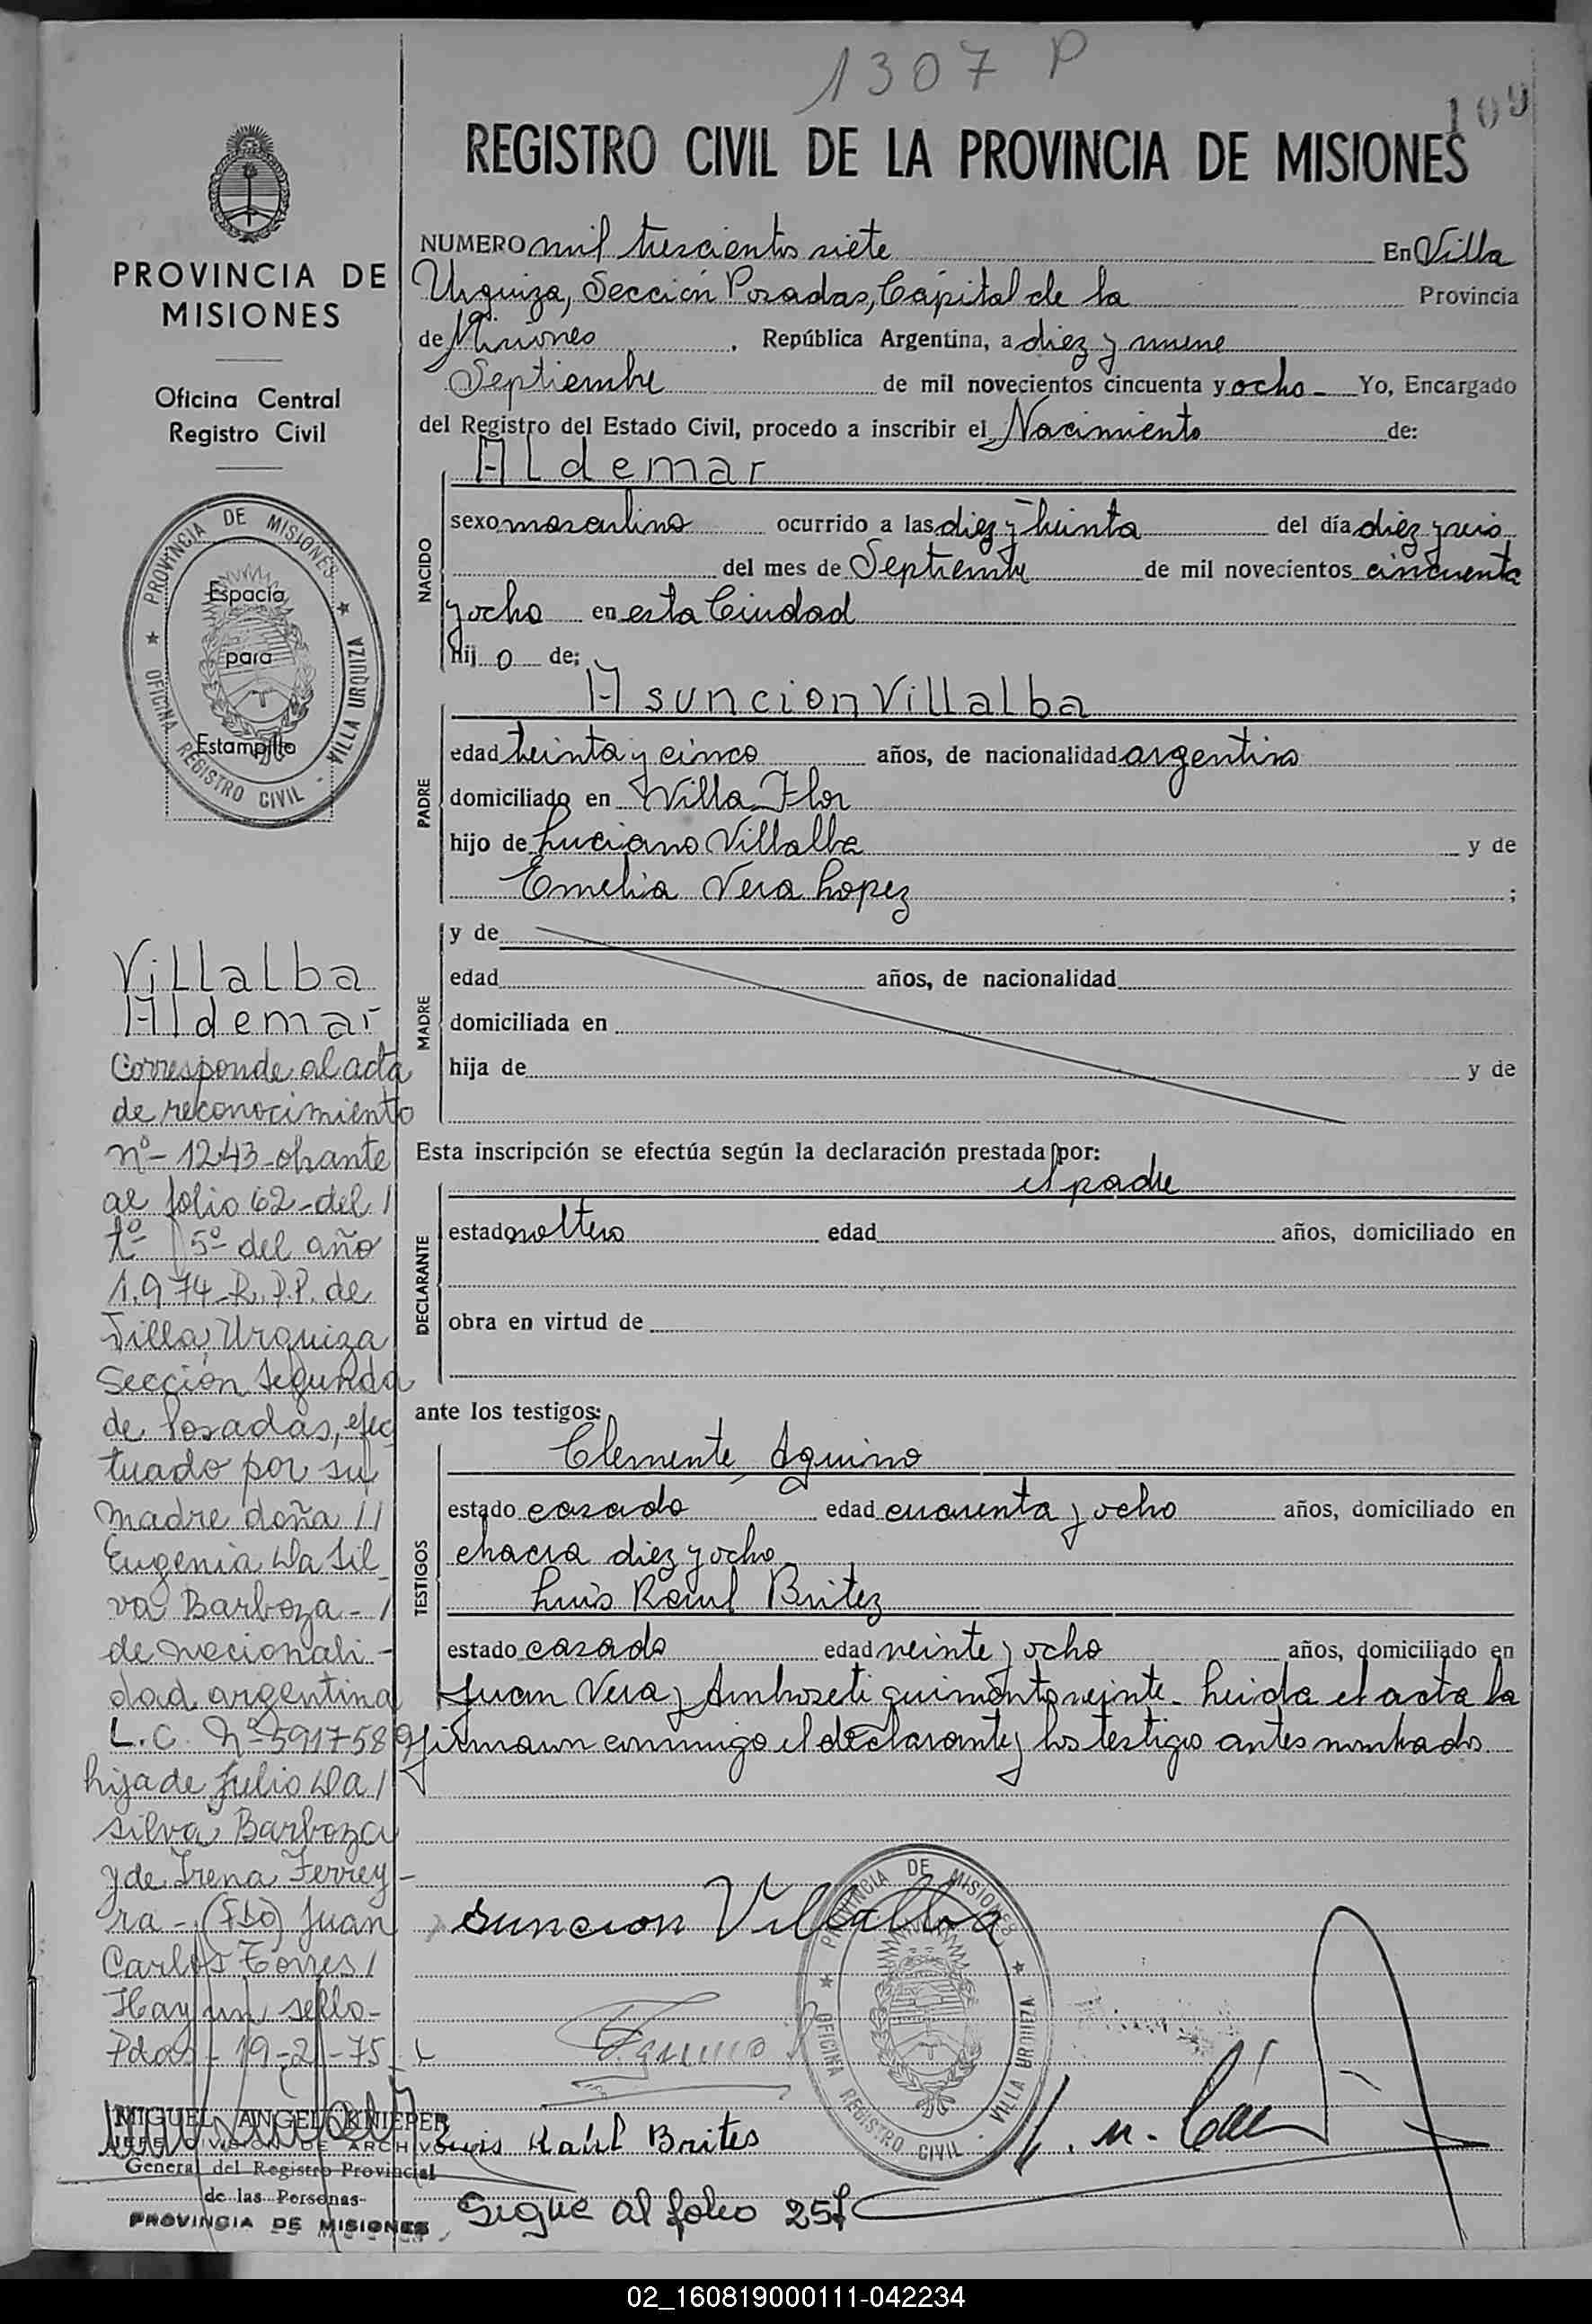 1307 P
109
REGISTRO CIVIL DE LA PROVINCIA DE MISIONES
PROVINCIA DE
MISIONES
Oficina Central
Registro Civil
PROVINCIA DE MISIONES
OFICINA REGISTRO CIVIL - VILLA URQUIZA
Espacio
para
Estampilla
Villalba
Aldemar
Corresponde al acta
de reconocimiento
nº- 1243-obrante
al folio 62-del /
tº 5º del año
1.974-R.P.P. de
Villa Urquiza
Sección Segunda
de Posadas, efec
tuado por su
madre doña //
Eugenia Da Sil
va Barboza - /
de nacionali-
dad argentina
L.C. Nº 5917589
hija de Julio Da /
Silva Barboza
y de Irena Ferrey-
ra - (Fdo) Juan
Carlos Torres /
Hay un sello-
Pdas - 19-2-75
MIGUEL ANGEL KNIEPER
JEFE DIVISION DE ARCHIVO
General del Registro Provincial
de las Personas
PROVINCIA DE MISIONES
NUMERO mil trescientos siete En Villa
Urquiza, Sección Posadas, Capital de la Provincia
de Misiones, República Argentina, a diez y nueve
Septiembre de mil novecientos cincuenta y ocho - Yo, Encargado
del Registro del Estado Civil, procedo a inscribir el Nacimiento de:
NACIDO
Aldemar
sexo masculino ocurrido a las diez y treinta del día diez y seis
del mes de Septiembre de mil novecientos cincuenta
y ocho en esta Ciudad
hij o de:
PADRE
Asuncion Villalba
edad treinta y cinco años, de nacionalidad argentino
domiciliado en Villa Flor
hijo de Luciano Villalba y de
Emelia Vera Lopez ;
MADRE
y de
edad años, de nacionalidad
domiciliada en
hija de y de
Esta inscripción se efectúa según la declaración prestada por:
DECLARANTE
el padre
estado soltero edad años, domiciliado en
obra en virtud de
ante los testigos:
TESTIGOS
Clemente Aquino
estado casado edad cuarenta y ocho años, domiciliado en
chacra diez y ocho
Luis Raul Britez
estado casado edad veinte y ocho años, domiciliado en
Juan Vera y Ambroseti quinientos veinte - Leida el acta la
firmaron conmigo el declarante y los testigo antes nombrados
suncion Villalba
PROVINCIA DE MISIONES
OFICINA REGISTRO CIVIL - VILLA URQUIZA
Luis Raúl Brites
Sigue al folio 257
02_160819000111-042234